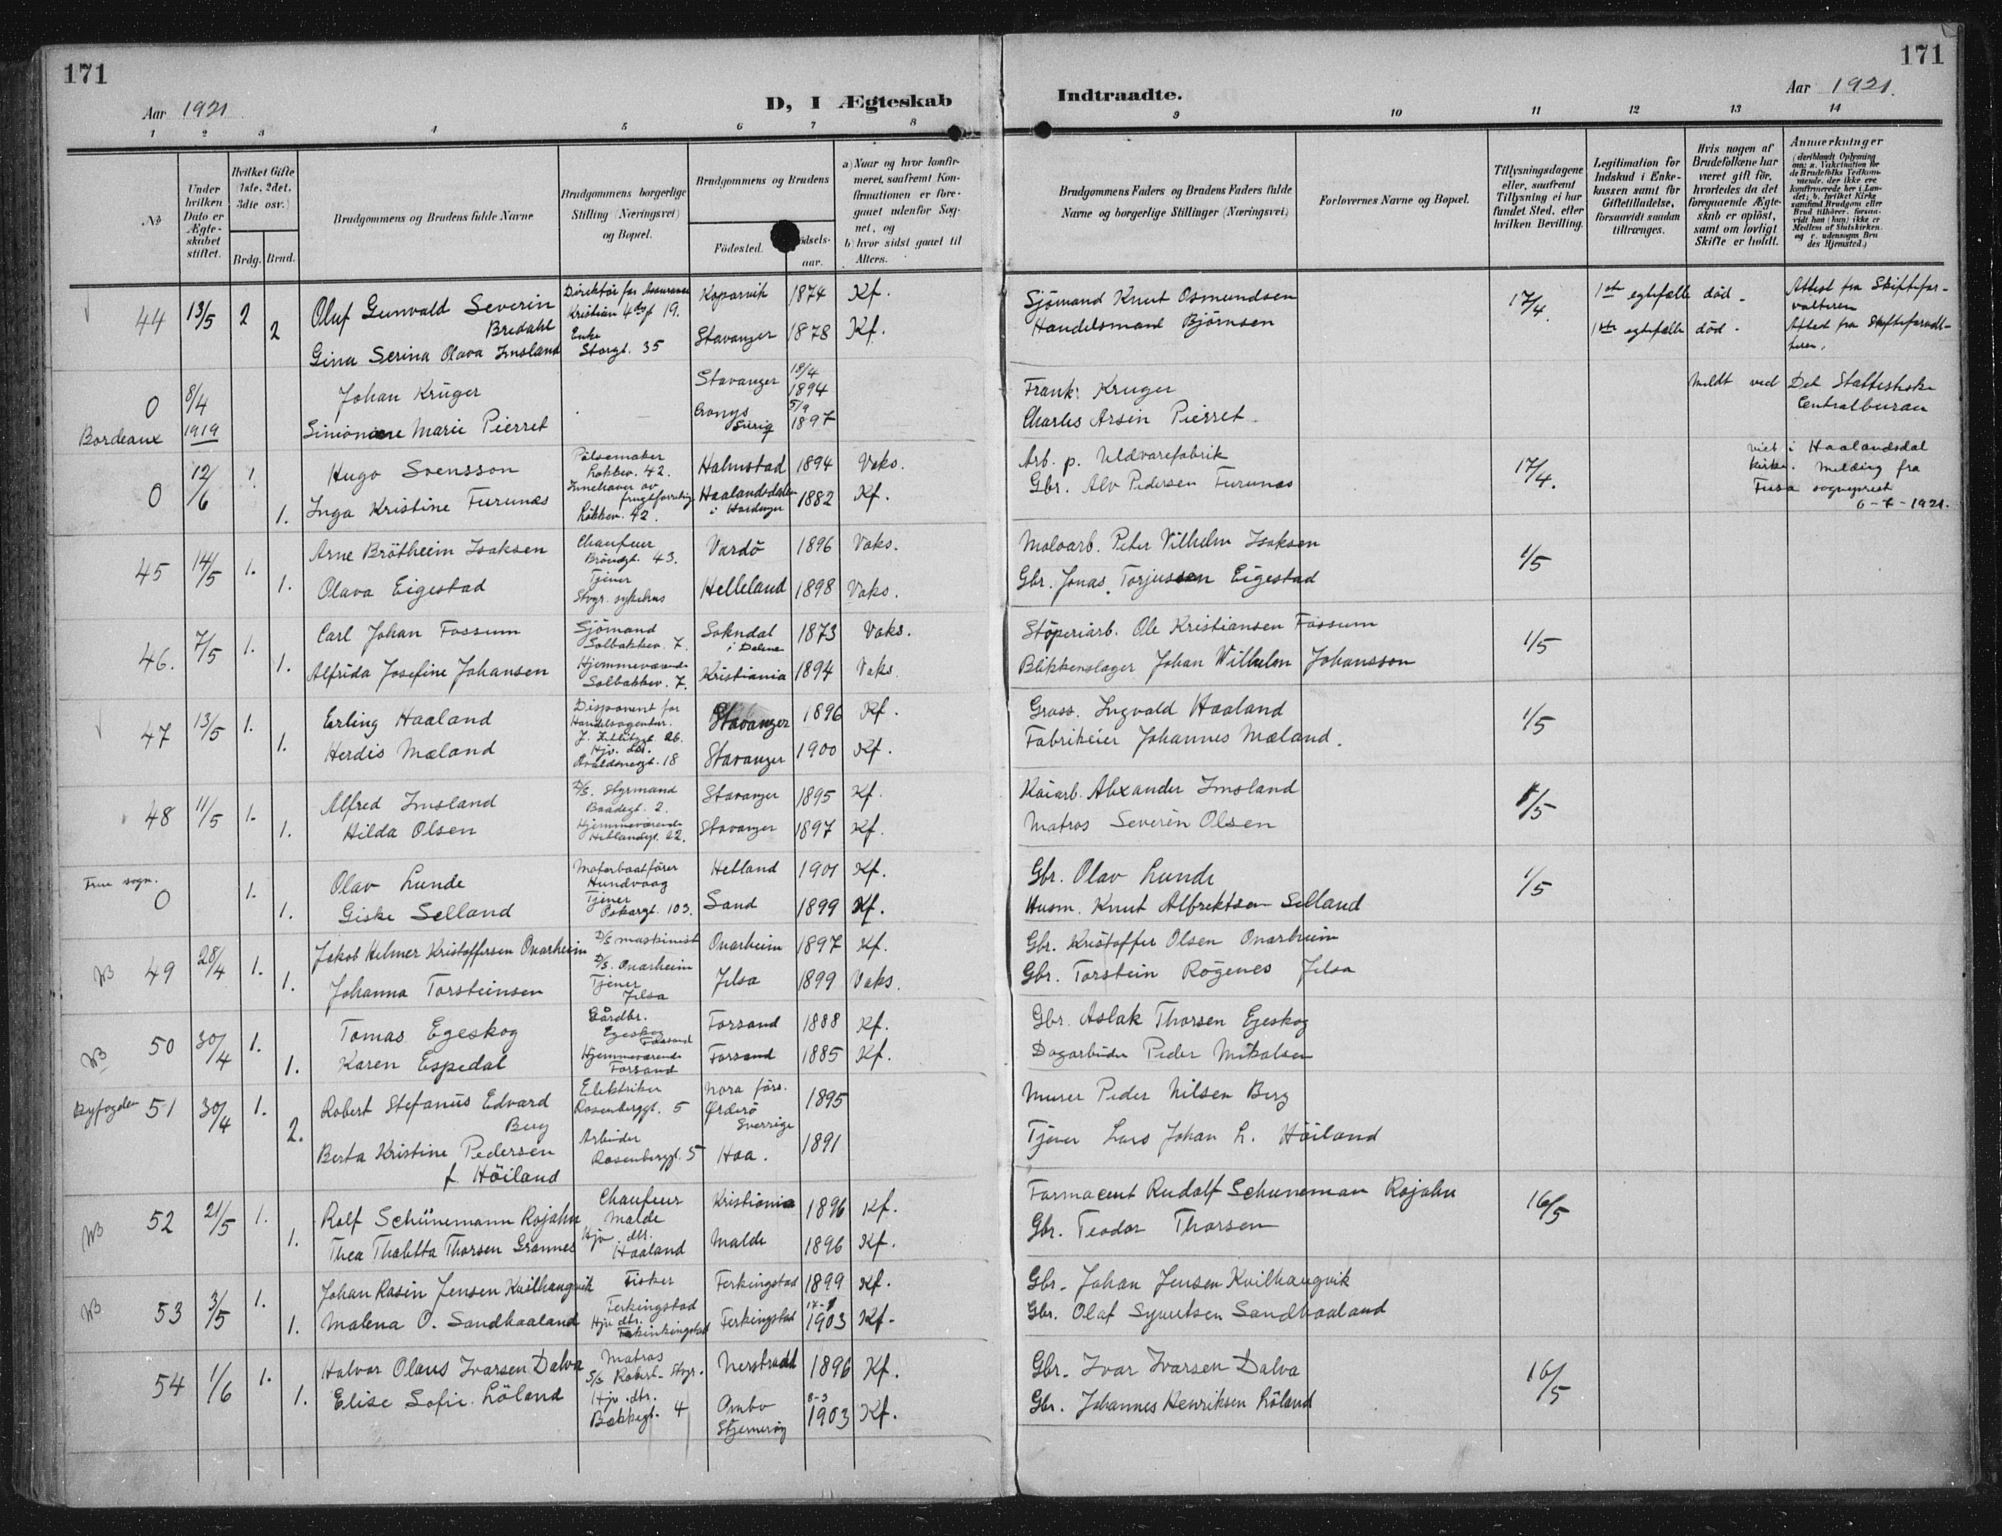 171
Aar 1921.
D, I Ægteskab
Indtraadte.
Aar 1921.
171
1 2 3 4 5 6 7 8 9 10 11 12 13 14
№
Under hvilken Dato er Ægteskabet stiftet.
Hvilket Gifte (1ste, 2det, 3die osv.)
Brdg. Brud.
Brudgommens og Brudens fulde Navne
Brudgommens borgerlige Stilling (Næringsvei) og Bopæl.
Brudgommens og Brudens
Fødested.
aar.
a) Naar og hvor konfirmeret, saafremt Konfirmationen er foregaaet udenfor Sognet, og
b) hvor sidst gaaet til Alters.
Brudgommens Faders og Brudens Faders fulde Navne og borgerlige Stillinger (Næringsvei)
Forlovernes Navne og Bopæl.
Tillysningsdagene eller, saafremt Tillysning ei har fundet Sted, efter hvilken Bevilling.
Legitimation for Indskud i Enkekassen samt for Giftetilladelse, forsaavidt saadan tiltrænges.
Hvis nogen af Brudefolkene har været gift før, hvorledes da det foregaaende Ægteskab er opløst, samt om lovligt Skifte er holdt.
Anmærkninger
44 13/5 2 Oluf Gunvald Severin Bredahl Direktør for Assurance Kristian 4des gt 19. Kopervik 1874 Kf. Sjömand Knut Osmundsen 17/4. 1ste egtefælle død. Attest fra Skifteforvalteren
2 Gina Serina Olava Imsland Enke Storgt. 35 Stavanger 1878 Kf. Handelsmand Bjørnsen 1ste egtefælle død.
0 Bordeaux 8/4 1919 Johan Krüger Stavanger 18/4 1894 Frank Kruger Meldt ved Det Statistiske Centralburau
Marie Pierret 5/9 1897 Charles Arsin Pierret
0 12/6 1. Hugo Svensson Pølsemaker Løkkev. 42. Halmstad 1894 Vaks. Arb. p. Uldvarefabrik 17/4. viet i Haalandsdal kirke. Melding fra Fusa sogneprest
1. Inga Kristine Furunæs Løkkev. 42. Haalandsdalen i Hardanger 1882 Kf. Gbr. Alv Pedersen Furunæs
45 14/5 1. Arne Brötheim Isaksen Chaufeur 43. Vardö 1896 Vaks. Moloarb. Peter Vilhelm Isaksen 1/5
1. Olava Eigestad Tjener Stvgr. sykehus Helleland 1898 Vaks. Gbr. Jonas Torjussen Eigestad
46. 7/5 1. Carl Johan Fossum Sjömand Solbakkev. 7. Sokndal i Dalene 1873 Vaks. Støperiarb. Ole Kristiansen Fossum 1/5
1. Alfrida Josefine Johansen Hjemmeværende Solbakkev. 7. Kristiania 1894 Vaks. Blikkenslager Johan Wilhelm Johansson
47 13/5 1. Erling Haaland Disponent for Handelsagentur. Stavanger 1896 Kf. Gross. Ingvald Haaland 1/5
1. Herdis Mæland Hjv. dtr. Avaldsnesgt. 18 Stavanger 1900 Kf. Fabrikeier Johannes Mæland.
48 11/5 1. Alfred Imsland D/S. Styrmand Baadegt. 2. Stavanger 1895 Kf. Kaiarb. Alexander Imsland 1/5
1. Hilda Olsen Hjemmeværende Hetlandsgt. 22. Stavanger 1897 Kf. Matros Severin Olsen
Frue sogn. 0 1. Olav Lunde Motorbaatfører Hundvaag Hetland 1901 Kf. Gbr. Olav Lunde 1/5
1. Giske Selland Tjener Oskarsgt. 103. Sand 1899 Kf. Husm. Knut Albrektsen Selland
49 28/4 1. Jakob Helmer Kristoffersen Onarheim D/S maskinist D/S. Onarheim Onarheim 1897 Kf. Gbr. Kristoffer Olsen Onarheim
1. Johanna Torsteinsen Tjener Jelsa Jelsa 1899 Vaks. Gbr. Torstein Røgenes Jelsa
50 30/4 1. Tomas Egeskog Gårdbr. Egeskog Forsand Forsand 1888 Kf. Gbr. Aslak Thorsen Egeskog
1. Karen Espedal Hjemmeværende Forsand Forsand 1885 Kf. Dagarbeider Peder Mikalsen
Byfogden 51 30/4 1. Robert Stefanus Edvard Berg Elektriker Rosenberggt. 5 Nora førs. Sverrige 1895 Murer Peder Nilsen Berg
2. Berta Kristine Pedersen f. Höiland Arbeider Rosenberggt. 5 Haa. 1891 Tjener Lars Johan L. Höiland
52 21/5 1. Rolf Schünemann Rojahn Chaufeur Malde Kristiania 1896 Kf. Farmaceut Rudolf Schuneman Rojahn 16/5
1. Thea Thalitta Thorsen Grannes Hjv. dtr. Haaland Malde 1896 Kf. Gbr. Teodor Thorsen
53 3/5 1. Johan Rasin Jensen Kvilhaugvik Fisker Ferkingstad Ferkingstad 1899 Kf. Gbr. Johan Jensen Kvilhaugvik
1. Malena O. Sandhaaland Hjv dtr. Ferkingstad 1903 Kf. Gbr. Olaf Syvertsen Sandhaaland
54 1/6 1. Halvor Olaus Ivarsen Dalva Matros S/S Robert Nerstrand 1896 Kf. Gbr. Ivar Ivarsen Dalva 16/5
1. Elise Sofie Löland Hjv. dtr. Bakkegt. 4 Ombo Stjernerøy 8-3 1903 Kf. Gbr. Johannes Henriksen Löland